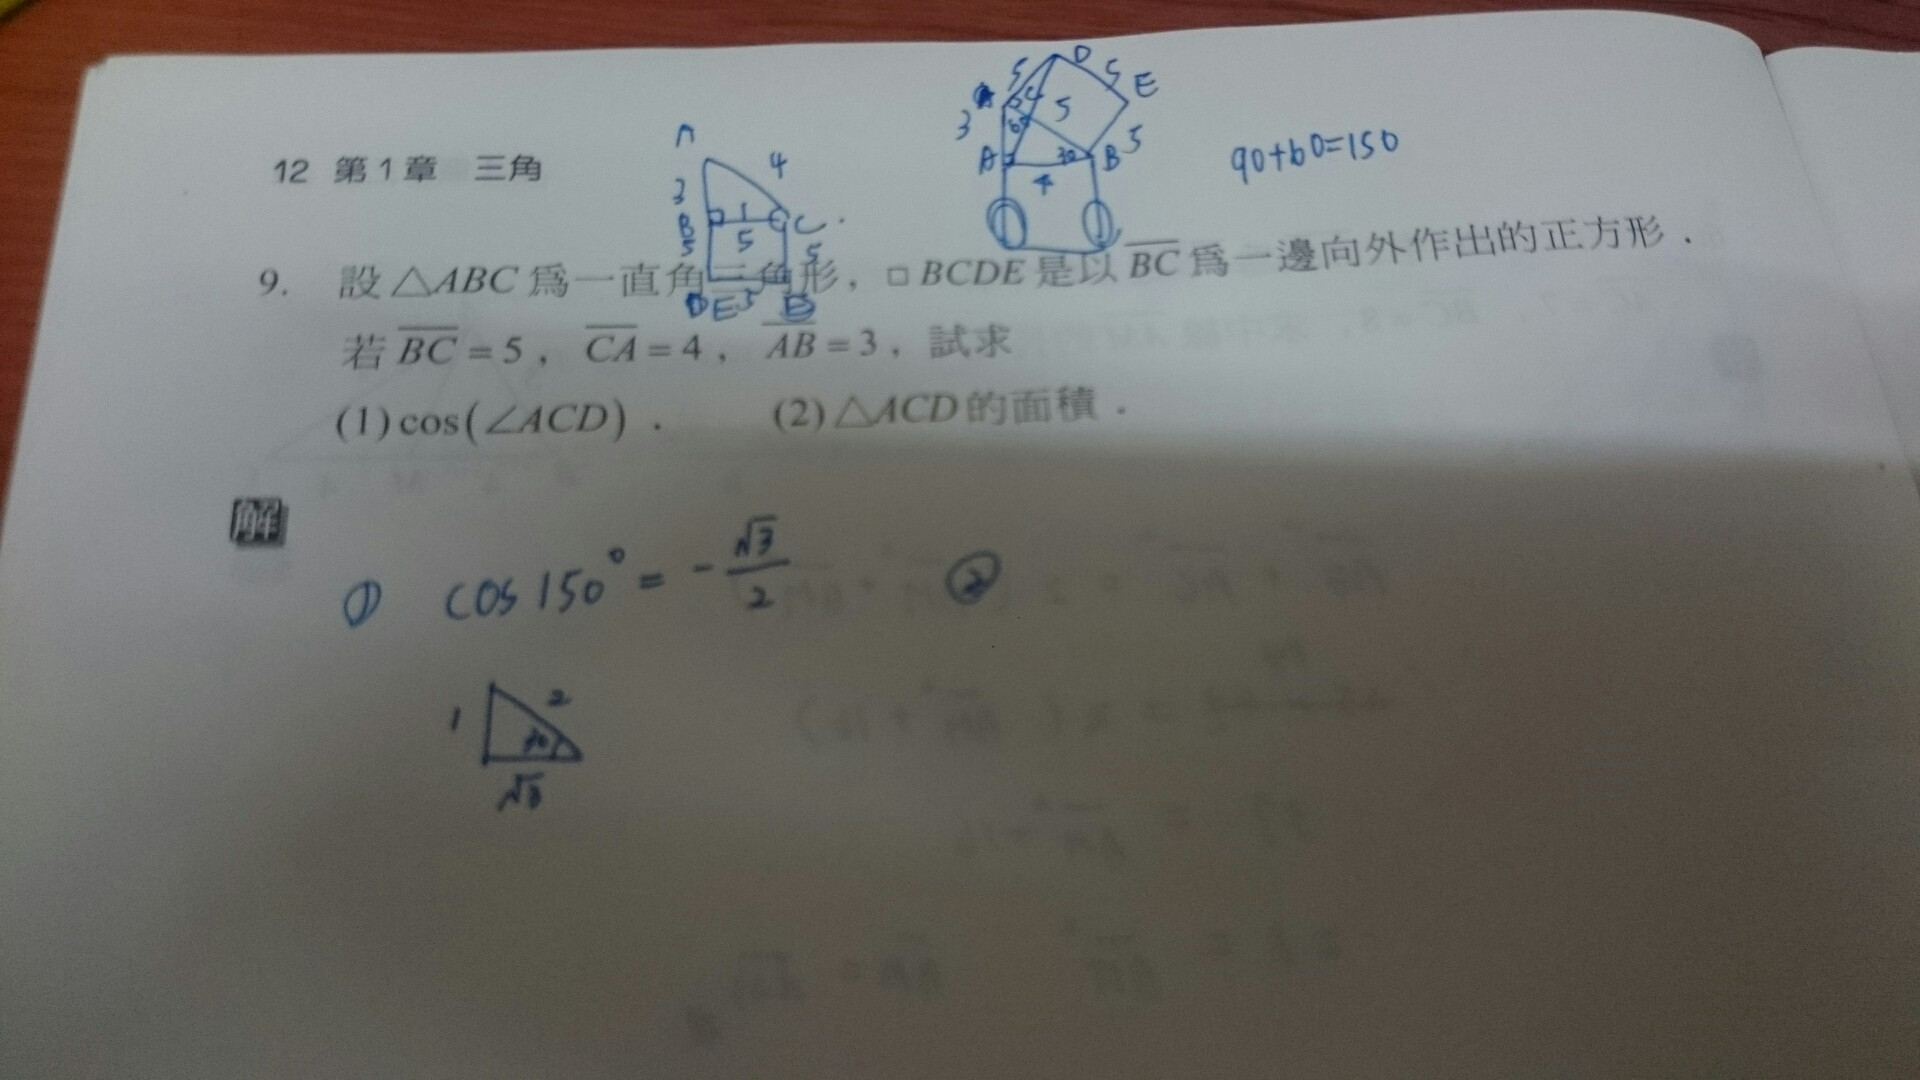 12 第1章 三角
A
4
3
B
1
C
5
5
5
D E 5
D
5
D
5
E
3
5
60
5
A
30
B
4
90+60=150
9. 設△ABC為一直角三角形，□BCDE是以BC為一邊向外作出的正方形．
若BC=5，CA=4，AB=3，試求
(1)cos(∠ACD)． (2)△ACD的面積．
解
① cos 150° = -√3/2 ②
1
2
30
√3